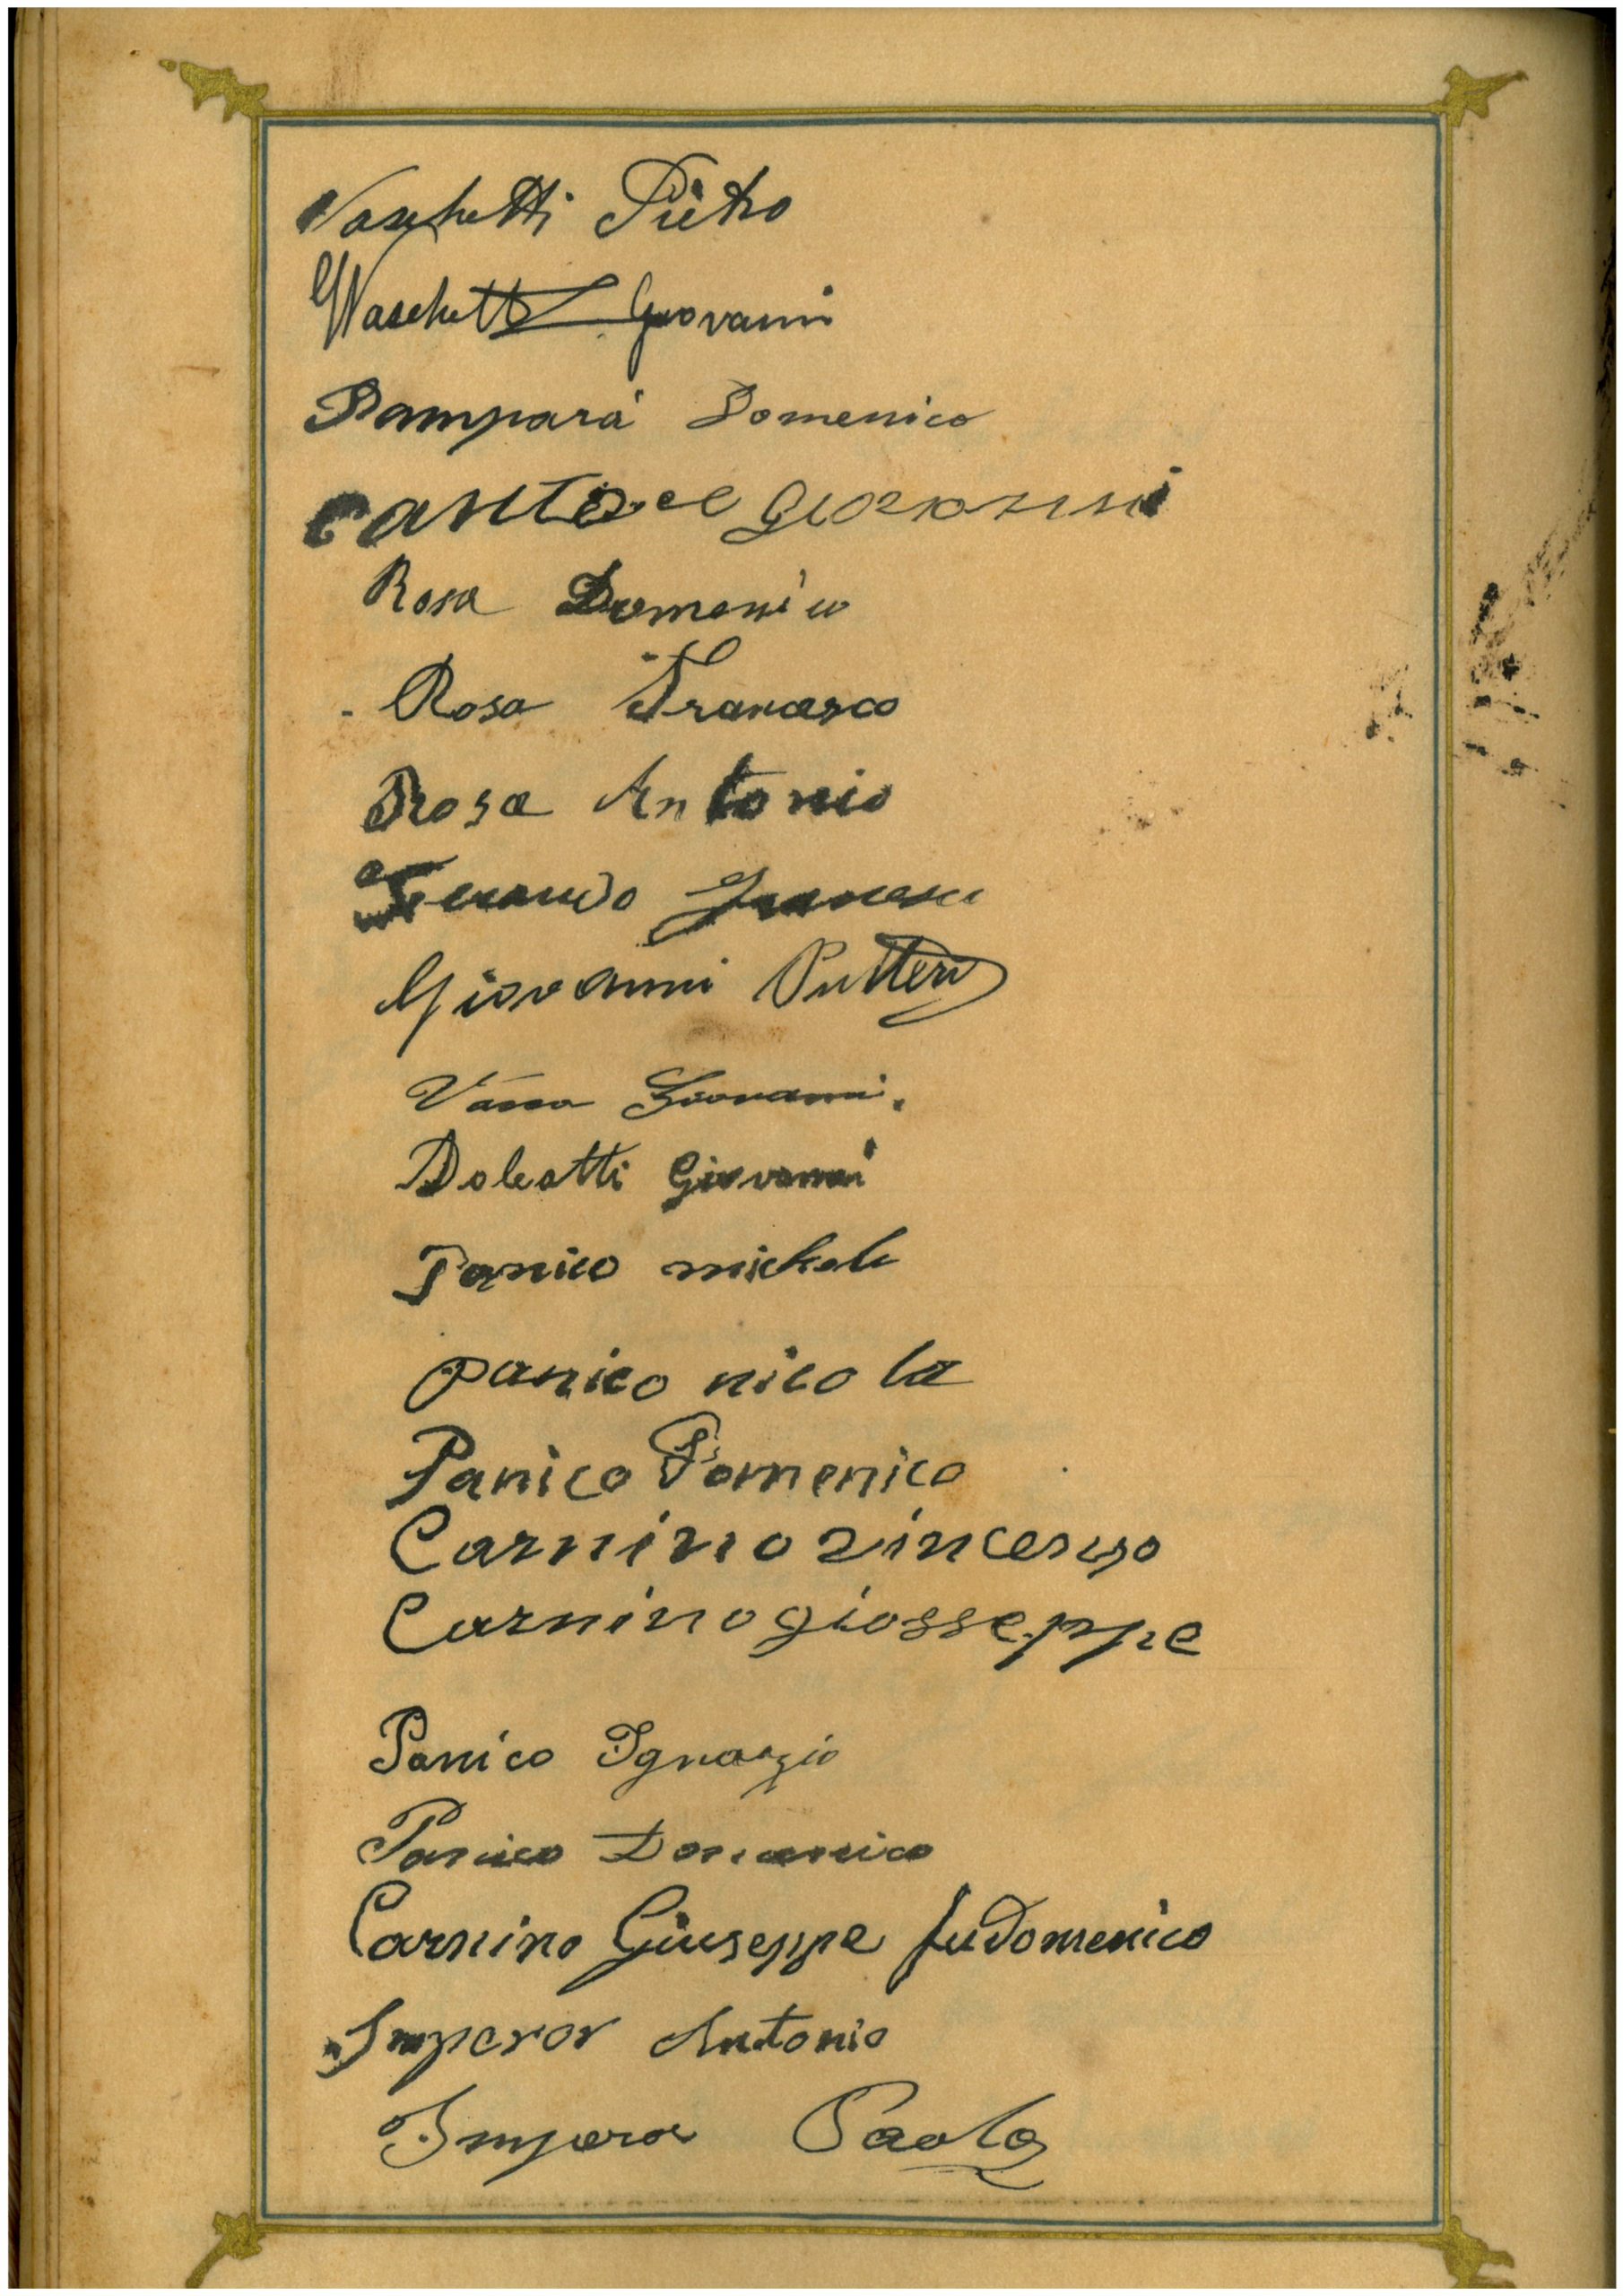 Vaschetti Pietro
Vaschetti Giovanni
Pamparà Domenico
Cantore Giovanni
Rosa Domenico
Rosa Francesco
Rosa Antonio
Giovanni Putteri
Giovanni
Doleatti Giovanni
Panico michele
Panico nicola
Panico Domenico
Carnino vincenso
Carnino giosseppe
Panico Ignazio
Panico Domenico
Carnino Giuseppe fu Domenico
Imperor Antonio
Imperor Paolo